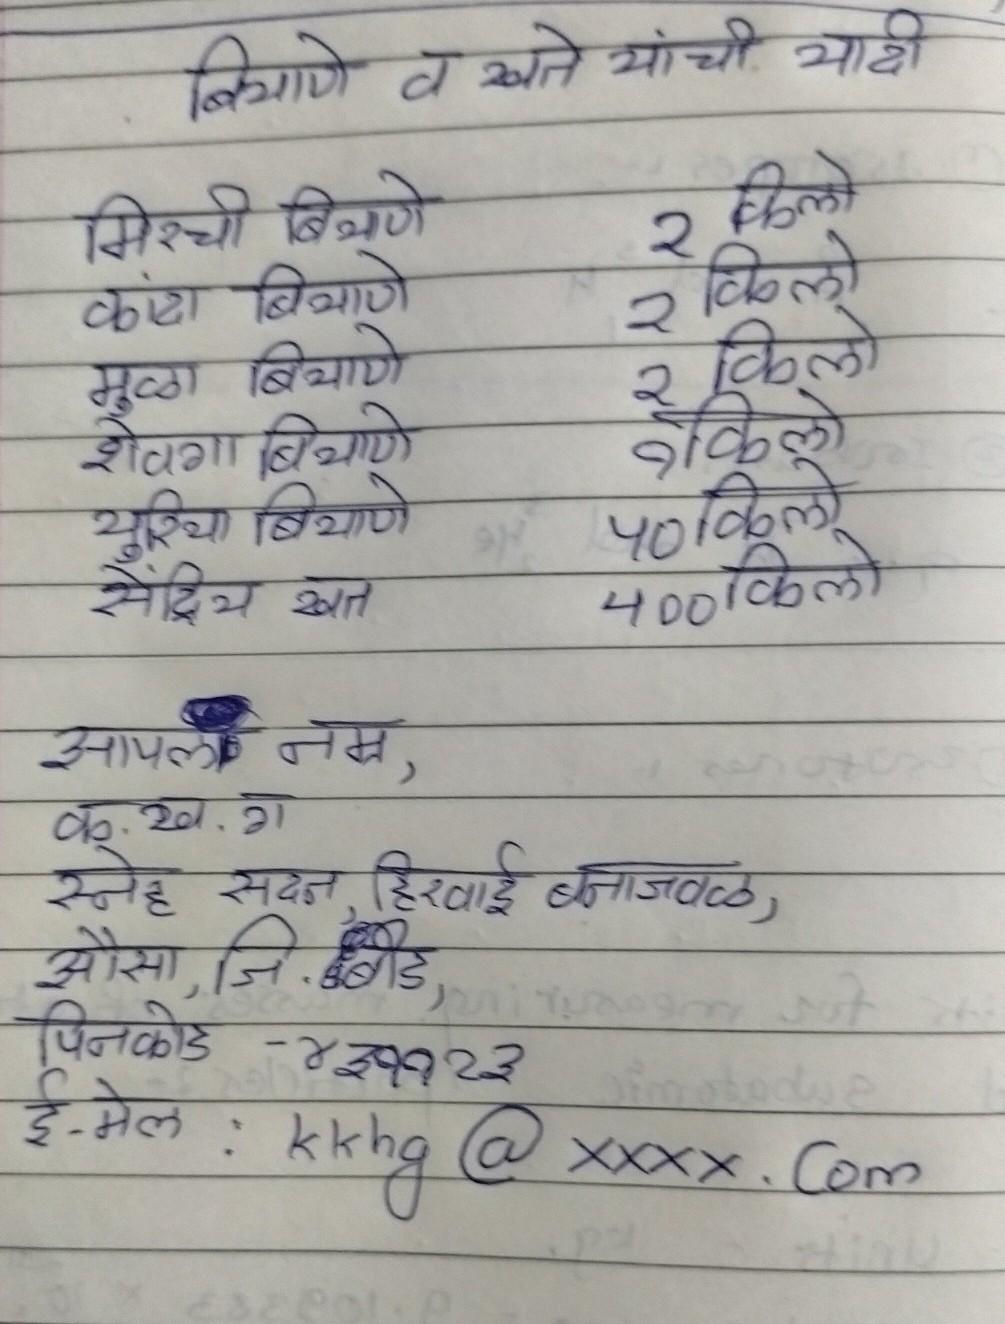 बियाणे व खते यांची यादी
मिरची बियाणे २ किलो
कांदा बियाणे २ किलो
मुळा बियाणे २ किलो
शेवगा बियाणे १ किलो
युरिया बियाणे ५० किलो
सेंद्रिय खत ५०० किलो
आपला नम्र,
क.ख.ग
स्नेह सदन, हिरवाई बनाजवळ,
औसा, जि. बीड,
पिनकोड -४३११२३
ई-मेल : kkhg@xxxx.com